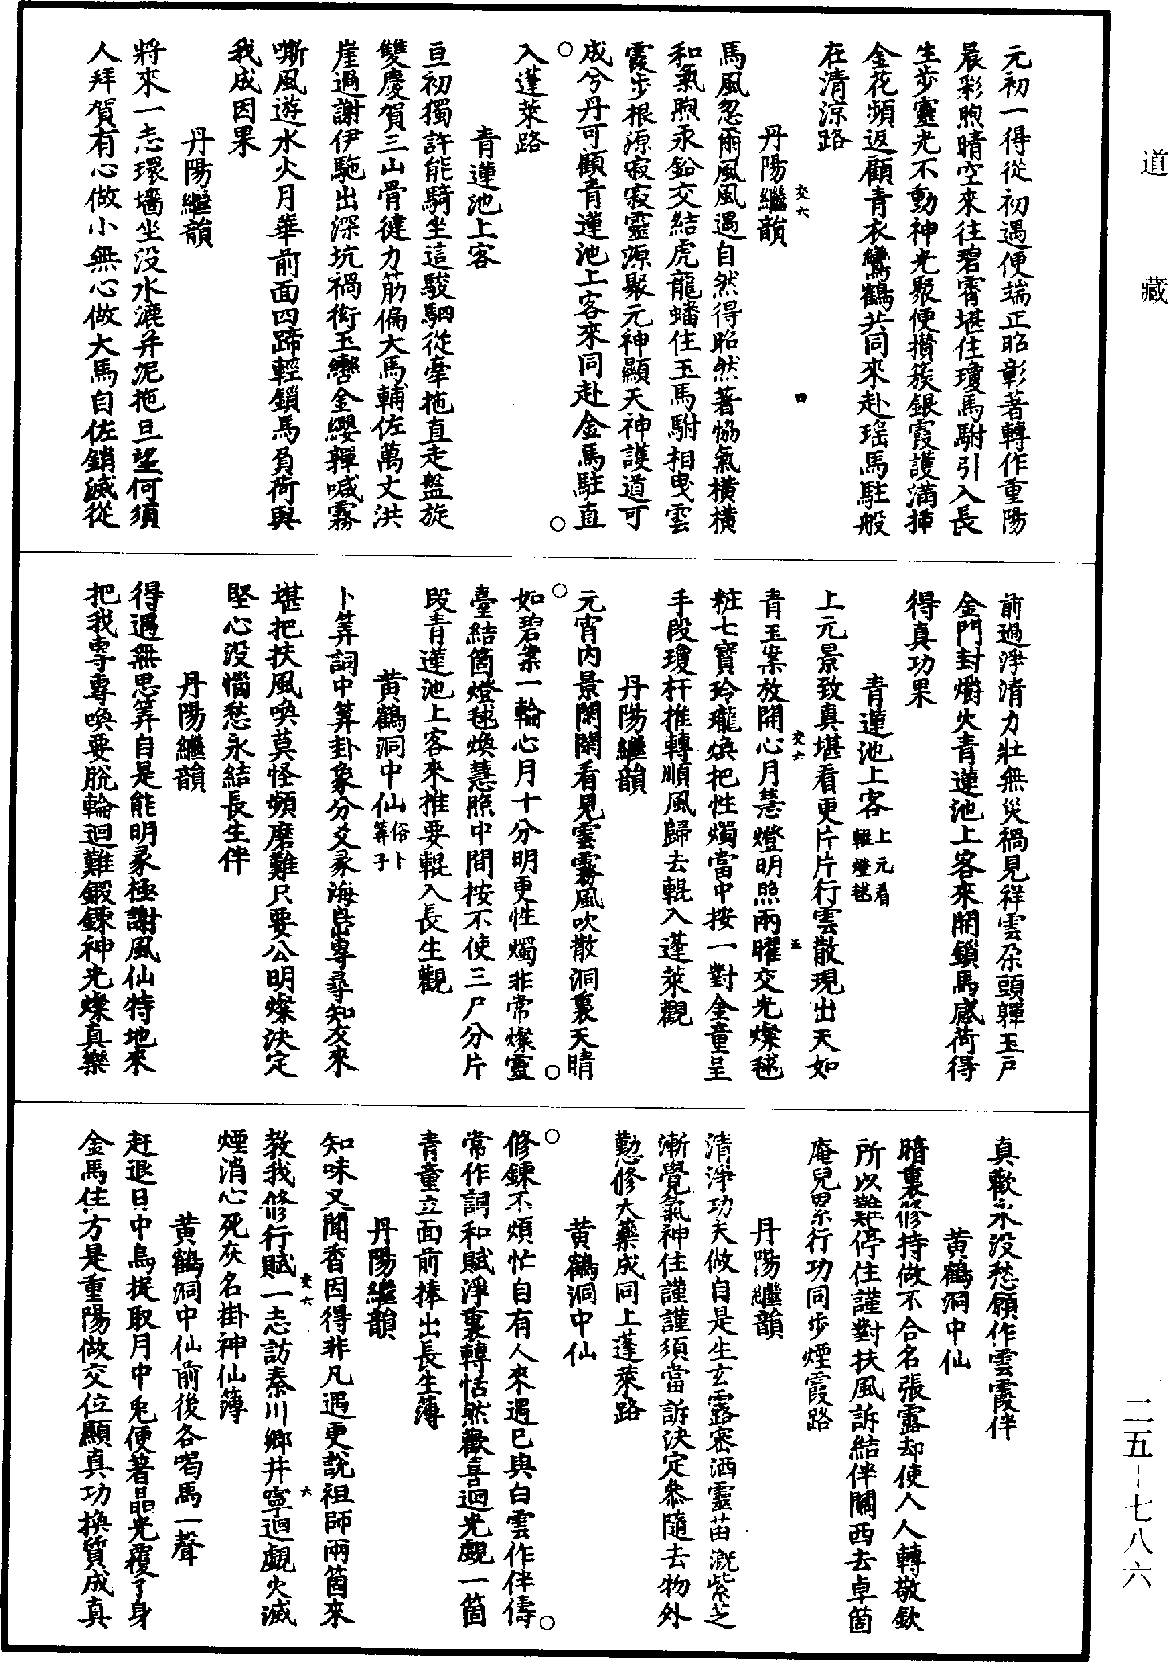 道藏
元初一得從初遇便端正昭彰著轉作重陽
晨彩煦晴空來往碧霄堪住瓊馬駙引入長
生步靈光不動神光聚便攢簇銀霞護滿揷
金花頻返顧青衣鸞鶴共同來赴瑶馬駐般
在清涼路
丹陽繼韻
馬風忽爾風風遇自然得昭然著恊氣橫橫
和氣煦汞鉛交結虎龍蟠住玉馬駙相曳雲
霞步根源寂寂靈源聚元神顯天神護道可
成兮丹可顧青蓮池上客來同赴金馬駐直
入蓬萊路
青蓮池上客
亘初獨許能騎坐這駿駟從牽拖直走盤旋
雙慶賀三山骨徤力筋偏大馬輔佐萬丈洪
崖過謝伊馳出深坑禍銜玉轡金纓嚲喊霧
嘶風遊水火月華前面四蹄輕鎖馬負荷與
我成因果
丹陽繼韻
將來一志環墻坐没水漉并泥拖旦望何須
人拜賀有心做小無心做大馬自佐銷滅從
前過淨清力壯無災禍見祥雲朶頭嚲玉戸
金門封爛火青蓮池上客來開鎖馬感荷得
得真功果
青蓮池上客 上元看輥燈毬
上元景致真堪看更片片行雲散現出天如
青玉案放開心月慧燈明照兩曜交光燦毬
粧七寶玲瓏煥把性燭當中按一對金童呈
手段瓊杆推轉順風歸去輥入蓬萊觀
丹陽繼韻
元宵内景閑閑看見雲霧風吹散洞裏天晴
如碧案一輪心月十分明更性燭非常燦靈
臺結箇燈毬煥慧照中間按不使三尸分片
段青蓮池上客來推要輥入長生觀
黄鶴洞中仙 俗卜筭子
卜筭詞中筭卦象分爻彖海島專尋知友來
堪把扶風喚莫怪頻磨難只要公明燦決定
堅心没惱愁永結長生伴
丹陽繼韻
得遇無思筭自是能明彖極謝風仙特地來
把我專專喚要脱輪迴難鍛鍊神光燦真樂
真歡永没愁願作雲霞伴
黄鶴洞中仙
暗裏修持做不合名張露却使人人轉敬欽
所以難停住謹對扶風訴結伴關西去卓箇
庵兒累行功同步煙霞路
丹陽繼韻
清淨功夫做自是生玄露密洒靈苗溉紫芝
漸覺氣神住謹謹須當訴決定叅隨去物外
懃修大藥成同上蓬萊路
黄鶴洞中仙
修鍊不煩忙自有人來遇已與白雲作伴儔
常作詞和賦淨裏轉恬然歡喜迴光覷一箇
青童立面前捧出長生薄
丹陽繼韻
知味又聞香因得非凡遇更說祖師兩箇來
教我修行賦一志訪秦川鄉井寧迴覷火滅
煙消心死灰名掛神仙薄
黄鶴洞中仙前後各喝馬一聲
赶退日中烏捉取月中兎便著晶光覆了身
金馬住方是重陽做交位顯真功換質成真
二五—七八六